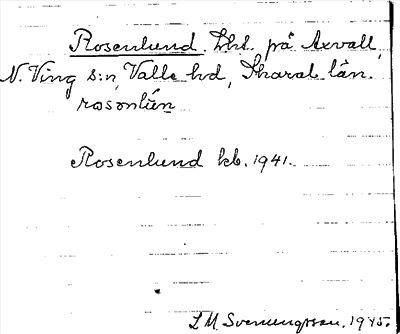 Rosenlund. Lht. på Axvall,
N. Ving s:n, Valle hd, Skarab. län.
rosənlɯ́n
Rosenlund kb. 1941.
L M Svenungsson. 1945.